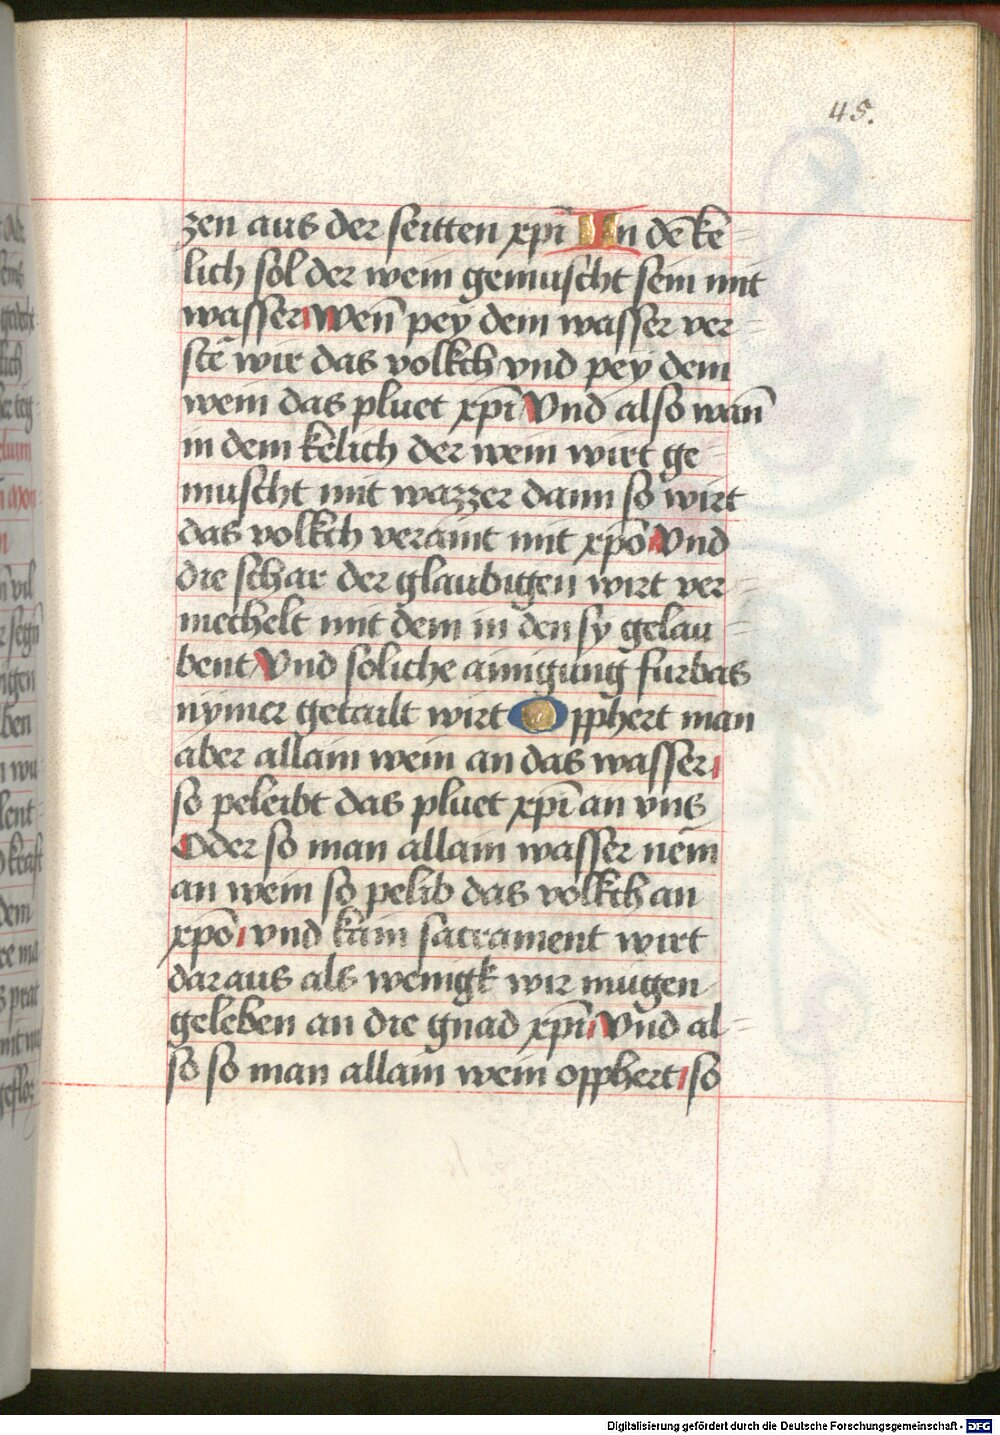 45.
zen aus der seitten xpī In dē ke
lich sol der wein gemuscht sein mit
wasser wen̄ pey dem wasser ver=
stē wir das volkch vnd pey dem
wein das pluet xpī Vnd also wan̄
in dem kelich der wein wirt ge
muscht mit wazzer dann so wirt
das volkch veraint mit xpō Vnd
die schar der glaubigen wirt ver=
mechelt mit dem in den sy gelau=
bent Vnd soliche ainigung furbas
nymer getailt wirt Opphert man
aber allain wein an das wasser
so peleibt das pluet xpī an vns
Oder so man allain wasser nēm
an wein so pelib das volkch an
xpō vnd kain sacrament wirt
daraus als wenigk wir mugen
geleben an die gnad xpī Vnd al=
so so man allain wein opphert so
Digitalisierung gefördert durch die Deutsche Forschungsgemeinschaft - DFG